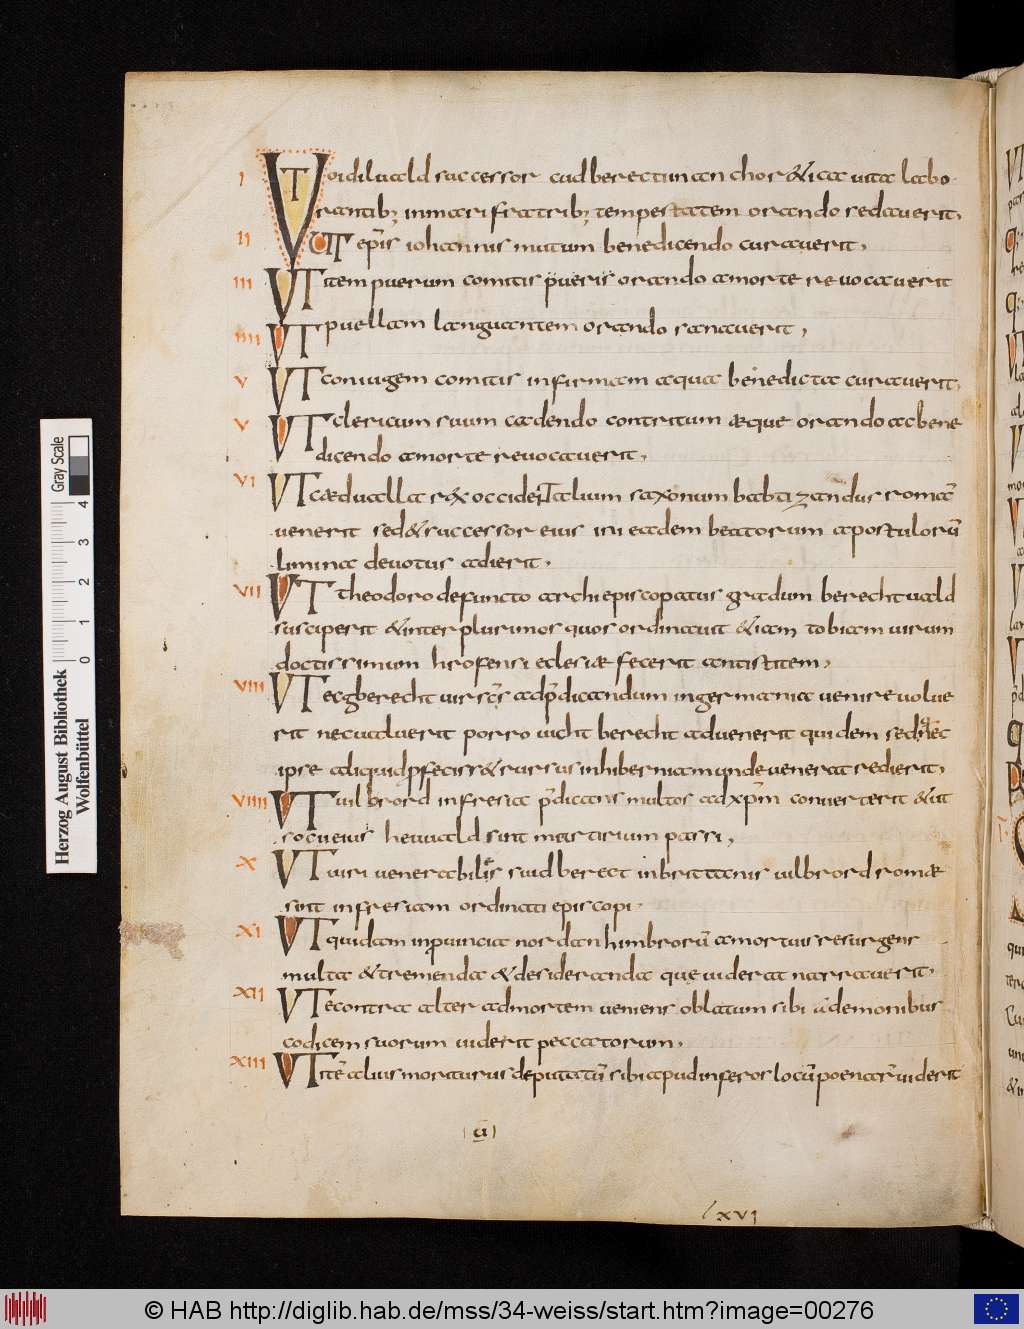 I VT oidiluald successor cudberecti in anchoretica uita labo
rantib; in mari fratrib; tempestatem orando sedauerit,
II UT epīs iohannis mutum benedicendo curauerit,
III VT item puerum comitis pueris orando a morte reuocauerit
IIII VT puellam languantem orando sanauerit,
V VT coniugem comitis infirmam aqua benedicta curauerit,
V VT clericum suum cadendo contritum æque orando ac bene
dicendo a morte reuocauerit,
VI VT cæduualla rex occidentalium saxonum babtizandus romā
uenerit sed & successor eius ini eadem beatorum apostulorū
limina deuotus adierit,
VII VT theodoro defuncto archiepiscopatus gradum berechtuuald
susciperit & inter plurimos quos ordinauit &iam tobiam uirum
doctissimum hrofensi eclesiæ fecerit antistitem,
VIII VT ecgberecht uir scs ad p̄dicandum in germania uenire uolue
rit nec ualuerit porro uicht berecht aduenerit quidem sed nec
ipse aliquid pfeciss& rursus in hiberniam unde uenerat redierit,
VIIII VT uilbrord in fresia p̄dicans multos ad xp̄m conuerterit & ut
socii eius heuuald sint martirium passi,
X VT uiri uenerabiles suidberect in brittanis uilbrord romæ
sint in fresiam ordinati episcopi
XI VT quidam in puincia nordanhimbrorū a mortuis resurgens
multa & tremenda & desideranda que uiderat narrauerit,
XII VT econtra alter ad mortem ueniens oblatum sibi a demonibus
codicem suorum uiderit peccatorum,
XIII VT itē alius moriturus deputatū sibi apud inferos locū poenarū uiderit
lxvi
Herzog August Bibliothek
Wolfenbüttel
0 1 2 3 4
Gray Scale
© HAB http://diglib.hab.de/mss/34-weiss/start.htm?image=00276